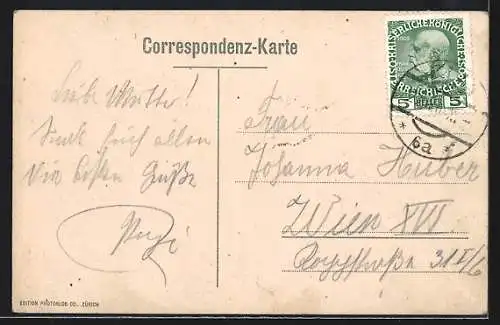 Correspondenz-Karte
KAISERLICHE KÖNIGLICHE
5 HELLER 5
6a
Liebe Mutter!
Euch allen
die besten Grüße
Frau
Johanna Huber
Wien XVI.
31 I/6
EDITION PHOTOGLOB CO., ZÜRICH